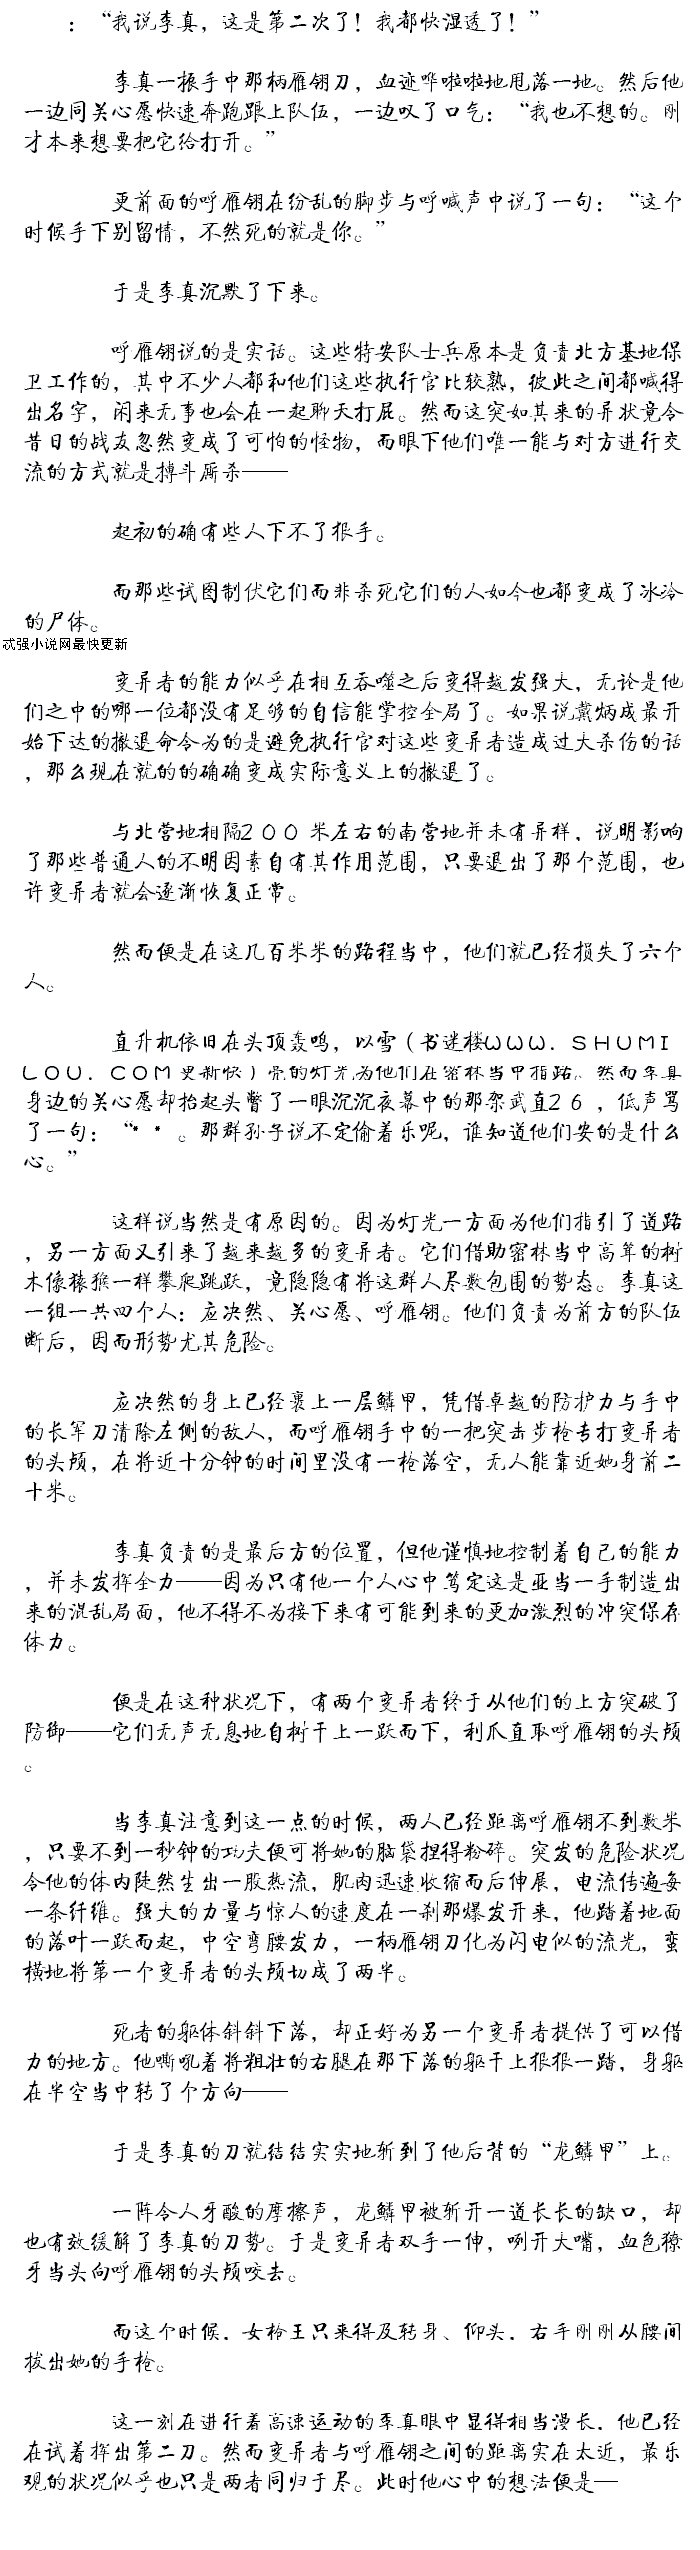 ：“我说李真，这是第二次了！我都快湿透了！”
李真一振手中那柄雁翎刀，血迹哗啦啦地甩落一地。然后他
一边同关心愿快速奔跑跟上队伍，一边叹了口气：“我也不想的。刚
才本来想要把它给打开。”
更前面的呼雁翎在纷乱的脚步与呼喊声中说了一句：“这个
时候手下别留情，不然死的就是你。”
于是李真沉默了下来。
呼雁翎说的是实话。这些特安队士兵原本是负责北方基地保
卫工作的，其中不少人都和他们这些执行官比较熟，彼此之间都喊得
出名字，闲来无事也会在一起聊天打屁。然而这突如其来的异状竟令
昔日的战友忽然变成了可怕的怪物，而眼下他们唯一能与对方进行交
流的方式就是搏斗厮杀——
起初的确有些人下不了狠手。
而那些试图制伏它们而非杀死它们的人如今也都变成了冰冷
的尸体。
忒强小说网最快更新
变异者的能力似乎在相互吞噬之后变得越发强大，无论是他
们之中的哪一位都没有足够的自信能掌控全局了。如果说戴炳成最开
始下达的撤退命令为的是避免执行官对这些变异者造成过大杀伤的话
，那么现在就的的确确变成实际意义上的撤退了。
与北营地相隔２００米左右的南营地并未有异样，说明影响
了那些普通人的不明因素自有其作用范围，只要退出了那个范围，也
许变异者就会逐渐恢复正常。
然而便是在这几百米米的路程当中，他们就已经损失了六个
人。
直升机依旧在头顶轰鸣，以雪（书迷楼ＷＷＷ．ＳＨＵＭＩ
ＬＯＵ．ＣＯＭ更新快）亮的灯光为他们在密林当中指路。然而李真
身边的关心愿却抬起头瞥了一眼沉沉夜幕中的那架武直２６，低声骂
了一句：“**。那群孙子说不定偷着乐呢，谁知道他们安的是什么
心。”
这样说当然是有原因的。因为灯光一方面为他们指引了道路
，另一方面又引来了越来越多的变异者。它们借助密林当中高耸的树
木像猿猴一样攀爬跳跃，竟隐隐有将这群人尽数包围的势态。李真这
一组一共四个人：应决然、关心愿、呼雁翎。他们负责为前方的队伍
断后，因而形势尤其危险。
应决然的身上已经裹上一层鳞甲，凭借卓越的防护力与手中
的长军刀清除左侧的敌人，而呼雁翎手中的一把突击步枪专打变异者
的头颅，在将近十分钟的时间里没有一枪落空，无人能靠近她身前二
十米。
李真负责的是最后方的位置，但他谨慎地控制着自己的能力
，并未发挥全力——因为只有他一个人心中笃定这是亚当一手制造出
来的混乱局面，他不得不为接下来有可能到来的更加激烈的冲突保存
体力。
便是在这种状况下，有两个变异者终于从他们的上方突破了
防御——它们无声无息地自树干上一跃而下，利爪直取呼雁翎的头颅
。
当李真注意到这一点的时候，两人已经距离呼雁翎不到数米
，只要不到一秒钟的功夫便可将她的脑袋捏得粉碎。突发的危险状况
令他的体内陡然生出一股热流，肌肉迅速收缩而后伸展，电流传遍每
一条纤维。强大的力量与惊人的速度在一刹那爆发开来，他踏着地面
的落叶一跃而起，中空弯腰发力，一柄雁翎刀化为闪电似的流光，蛮
横地将第一个变异者的头颅切成了两半。
死者的躯体斜斜下落，却正好为另一个变异者提供了可以借
力的地方。他嘶吼着将粗壮的右腿在那下落的躯干上狠狠一踏，身躯
在半空当中转了个方向——
于是李真的刀就结结实实地斩到了他后背的“龙鳞甲”上。
一阵令人牙酸的摩擦声，龙鳞甲被斩开一道长长的缺口，却
也有效缓解了李真的刀势。于是变异者双手一伸，咧开大嘴，血色獠
牙当头向呼雁翎的头颅咬去。
而这个时候，女枪王只来得及转身、仰头，右手刚刚从腰间
拔出她的手枪。
这一刻在进行着高速运动的李真眼中显得相当漫长，他已经
在试着挥出第二刀。然而变异者与呼雁翎之间的距离实在太近，最乐
观的状况似乎也只是两者同归于尽。此时他心中的想法便是—